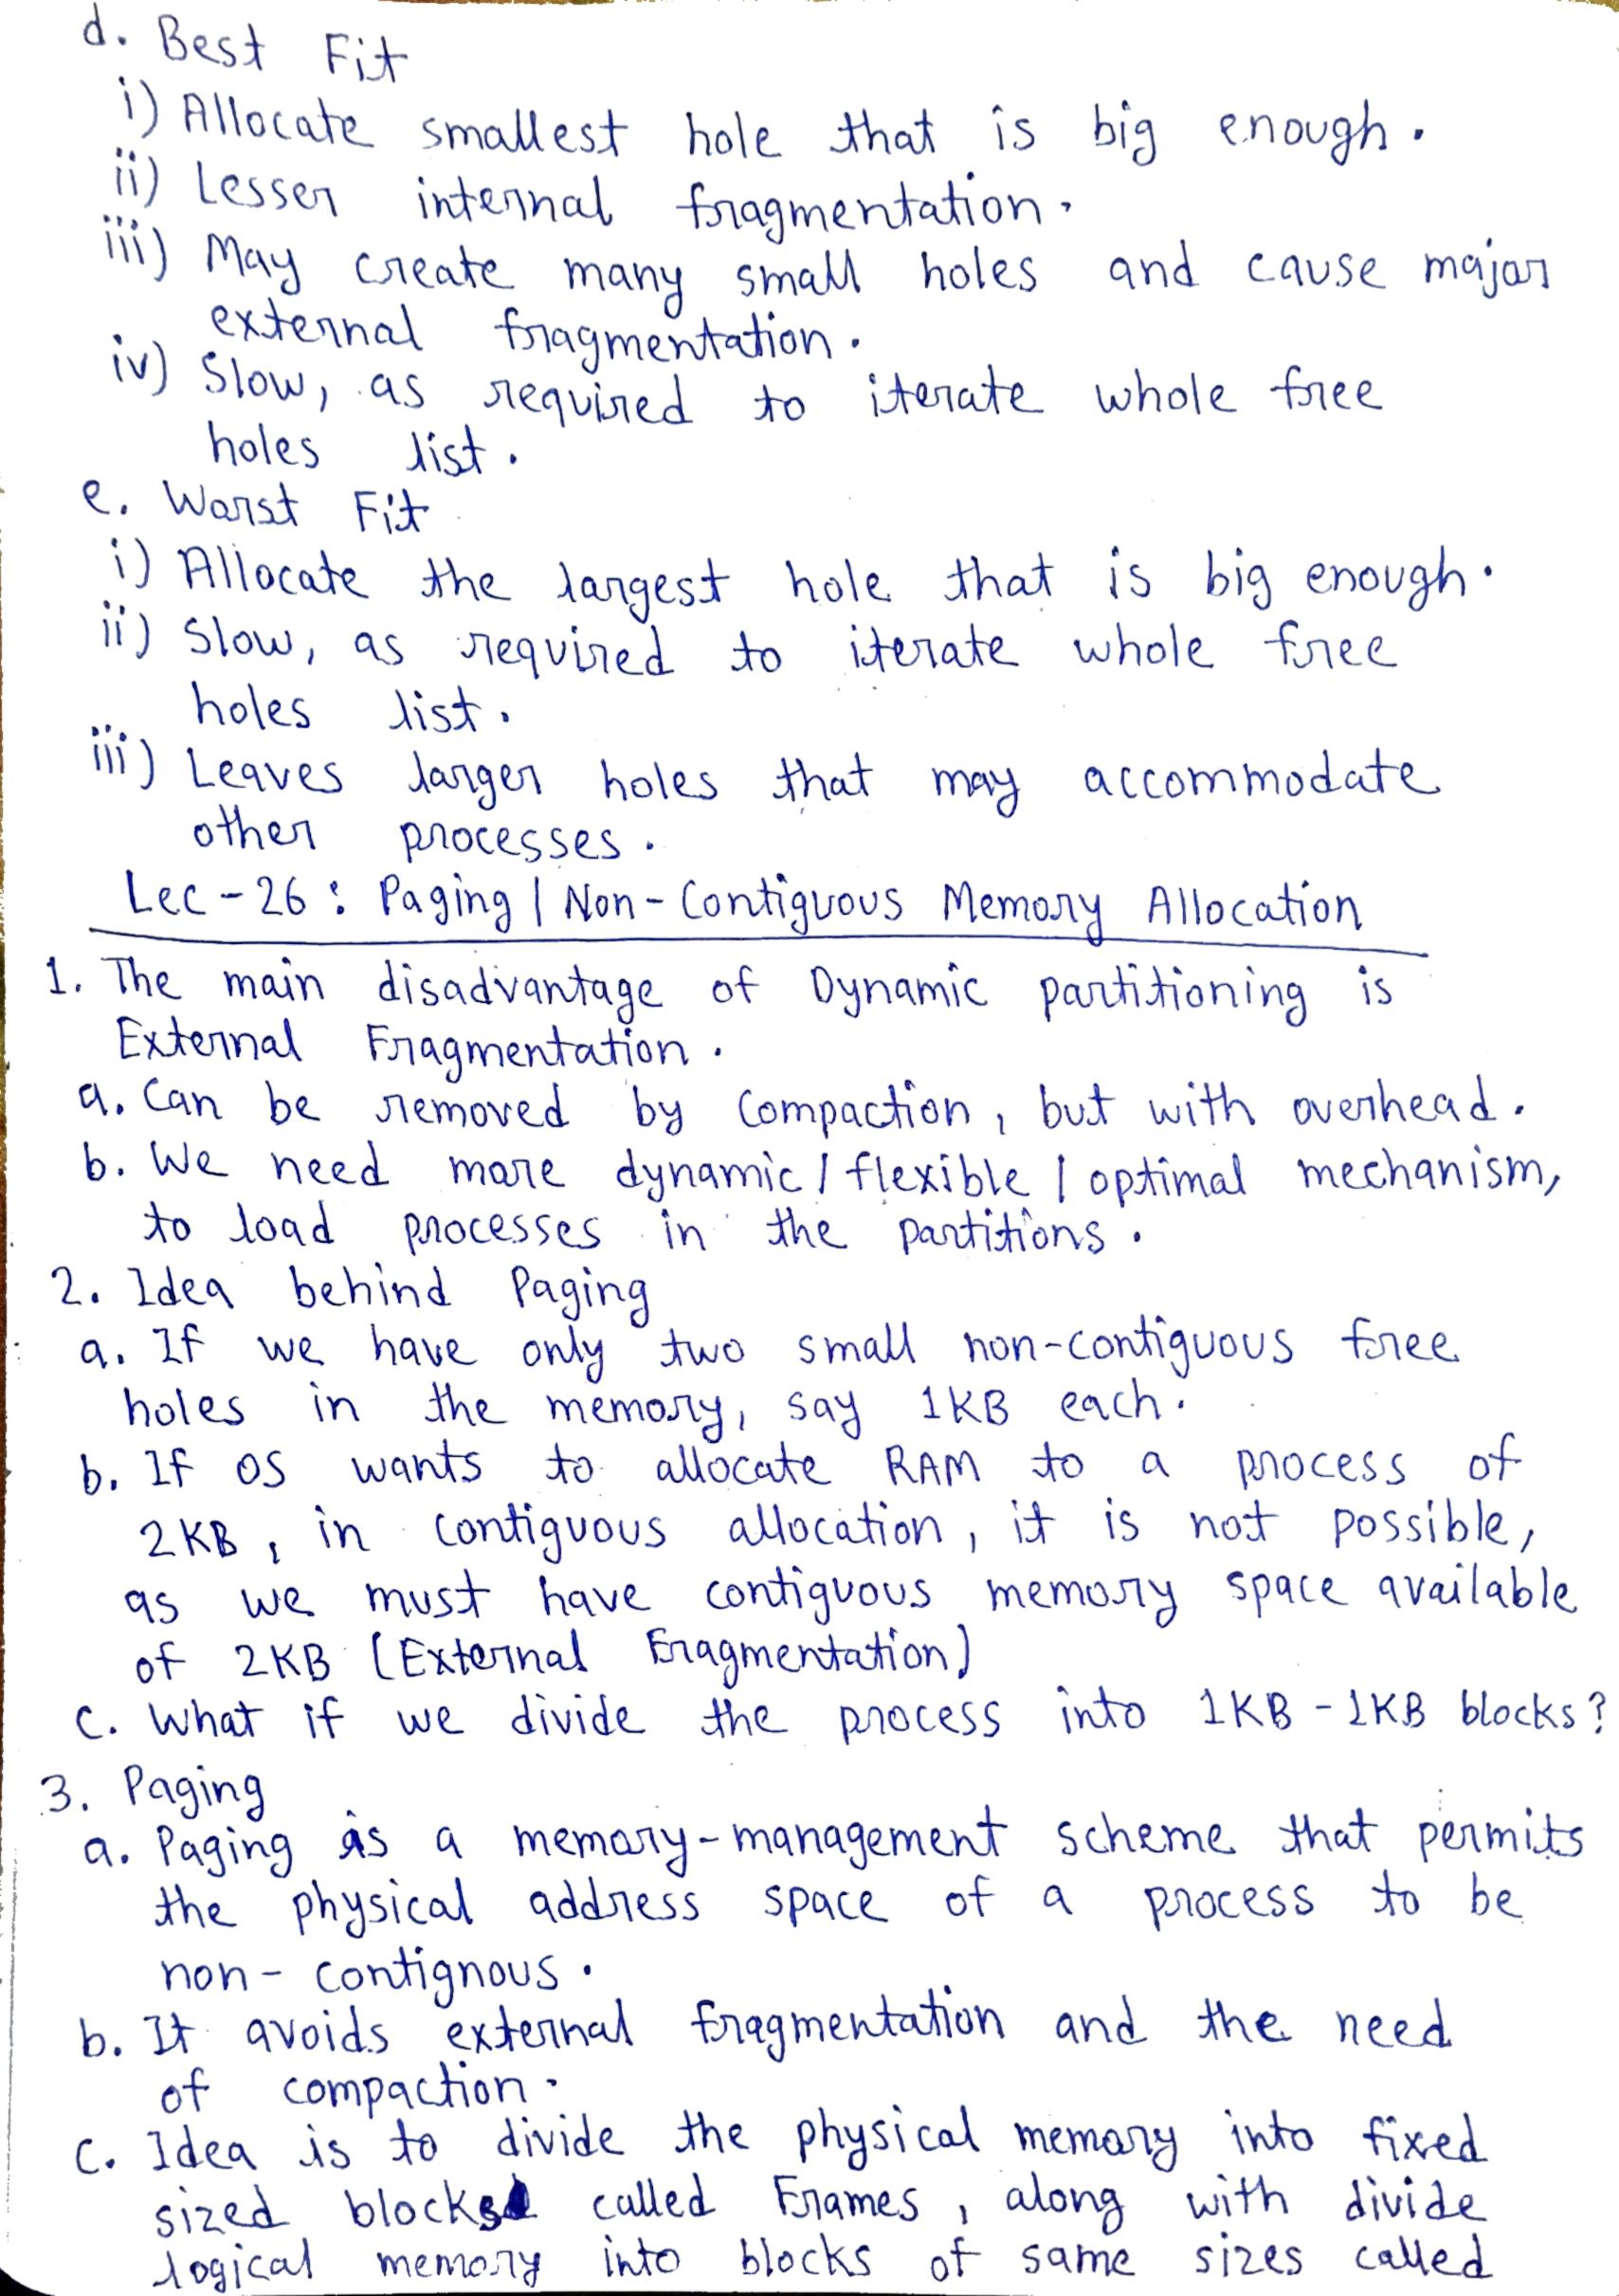 d. Best Fit
i) Allocate smallest hole that is big enough.
ii) Lesser internal fragmentation.
iii) May create many small holes and cause major
external fragmentation.
iv) Slow, as required to iterate whole free
holes list.
e. Worst Fit
i) Allocate the largest hole that is big enough.
ii) Slow, as required to iterate whole free
holes list.
iii) Leaves larger holes that may accommodate
other processes.
Lec-26: Paging | Non-Contiguous Memory Allocation
1. The main disadvantage of Dynamic partitioning is
External Fragmentation.
a. Can be removed by Compaction, but with overhead.
b. We need more dynamic / flexible / optimal mechanism,
to load processes in the partitions.
2. Idea behind Paging
a. If we have only two small non-contiguous free
holes in the memory, say 1KB each.
b. If OS wants to allocate RAM to a process of
2KB, in contiguous allocation, it is not possible,
as we must have contiguous memory space available
of 2KB (External Fragmentation)
c. What if we divide the process into 1KB-1KB blocks?
3. Paging
a. Paging is a memory-management scheme that permits
the physical address space of a process to be
non-contignous.
b. It avoids external fragmentation and the need
of compaction.
c. Idea is to divide the physical memory into fixed
sized blocks called Frames, along with divide
logical memory into blocks of same sizes called